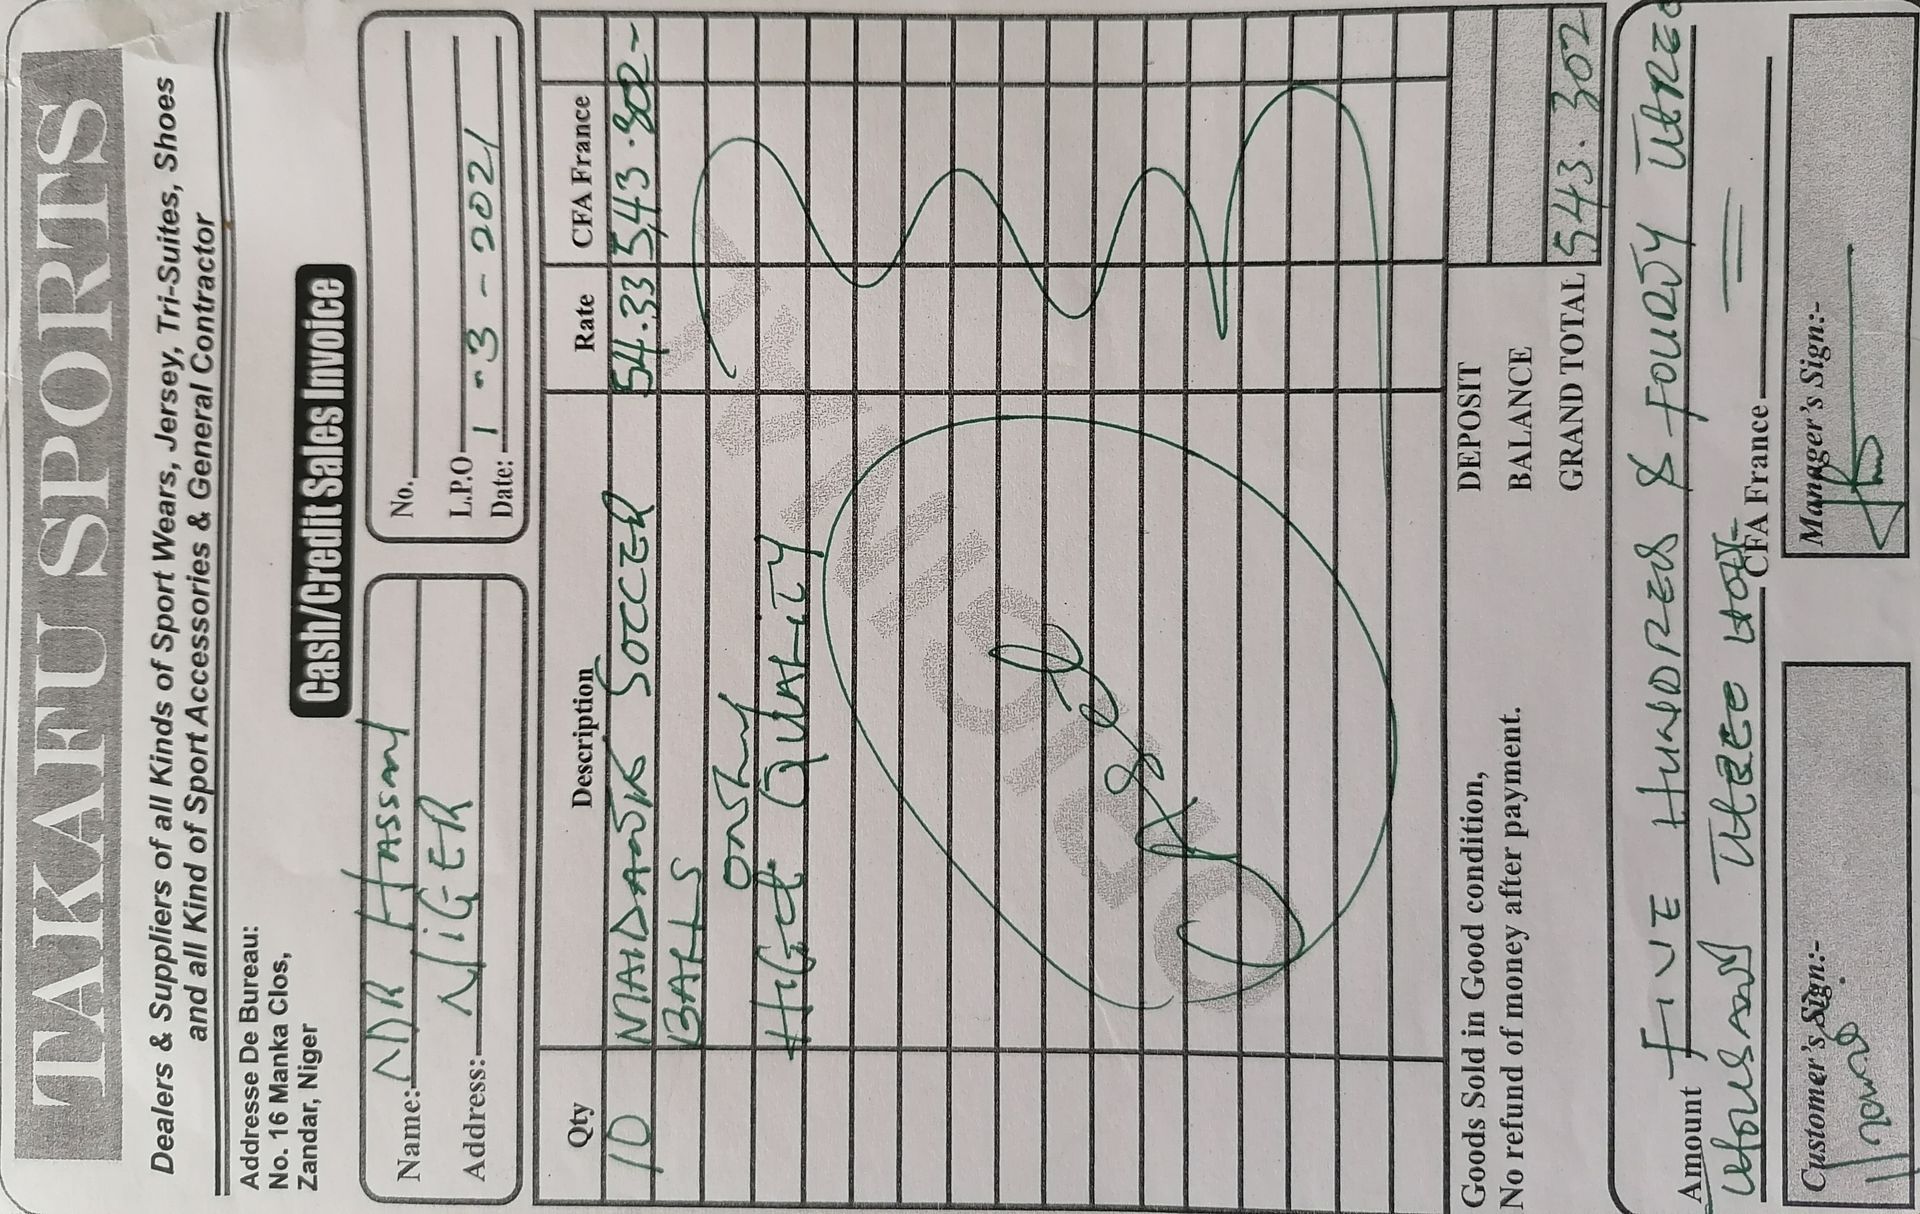 TAKAFU SPORTS
Dealers & Suppliers of all Kinds of Sport Wears, Jersey, Tri-Suites, Shoes
and all Kind of Sport Accessories & General Contractor
Addresse De Bureau:
No. 16 Manka Clos,
Zandar, Niger
Cash/Credit Sales Invoice
Name: HASSAN
Address: NiGER
No.
L.P.O
Date: 1-3-2021
Qty Description Rate CFA France
10 SOCCER 54.33 5,43.302-
BALLS
ONLY
HiGH QUALITY
Goods Sold in Good condition,
No refund of money after payment.
DEPOSIT
BALANCE
GRAND TOTAL 543.302
Amount FIVE HUNDRED & FOURTY
CFA France
Customer's Sign:-
Manager's Sign:-